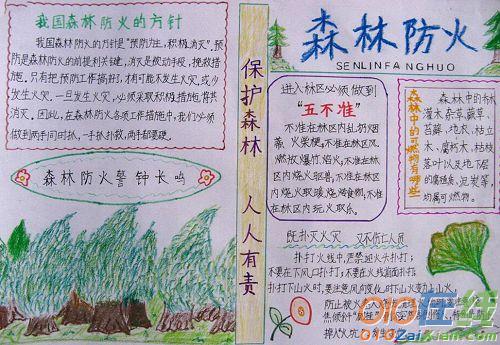 我国森林防火的方针
我国森林防火的方针是"预防为主,积极消灭",预
防是森林防火的前提和关键,消灭是被动手段,挽救措
施,只有把预防工作搞好,才有可能不发生火灾,或少
发生火灾,一旦发生火灾,必须采取积极措施,背其
消灭,因此,在森林防火各项工作措施中,我们必须
做到两手同时抓,一手抓,扑救,两手都要硬。
森林防火警钟长鸣
保护森林
人人有责
森林防火
SENLINFANGHUO
进入林区必须做到
"五不准"
不准在林区内乱扔烟
蒂、火柴梗;不准在林区
燃放爆竹、焰火;不准在林
区内烧火驱兽;不准在林
区内烧火取暖烧烤食物;不准
在林区内玩火取乐。
森林中的可燃物有哪些
森林中的有
灌木、杂草、蕨草、
苔藓、地衣、枯立
木、腐朽木、枯枝
落叶以及地下层
的腐殖质、泥炭等,
均属可燃物。
既扑灭火灾 又不伤亡人员
扑打火线中,严禁迎火头扑打;
不要在下风口扑打;不要在火线前面扑打;
扑打下山火时,要注意风向变化,时下山火变为上山火,
防止被火